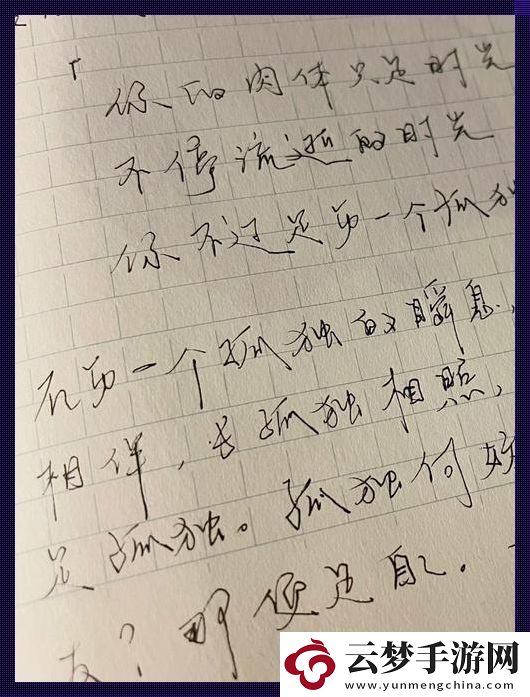 「
你的肉体只是时光
不停流逝的时光
你不过是每一个孤独
在每一个孤独的瞬息,
相伴,与孤独相照,
是孤独。孤独何好
友?那便是自己.
云梦手游网
www.yunmengchina.com